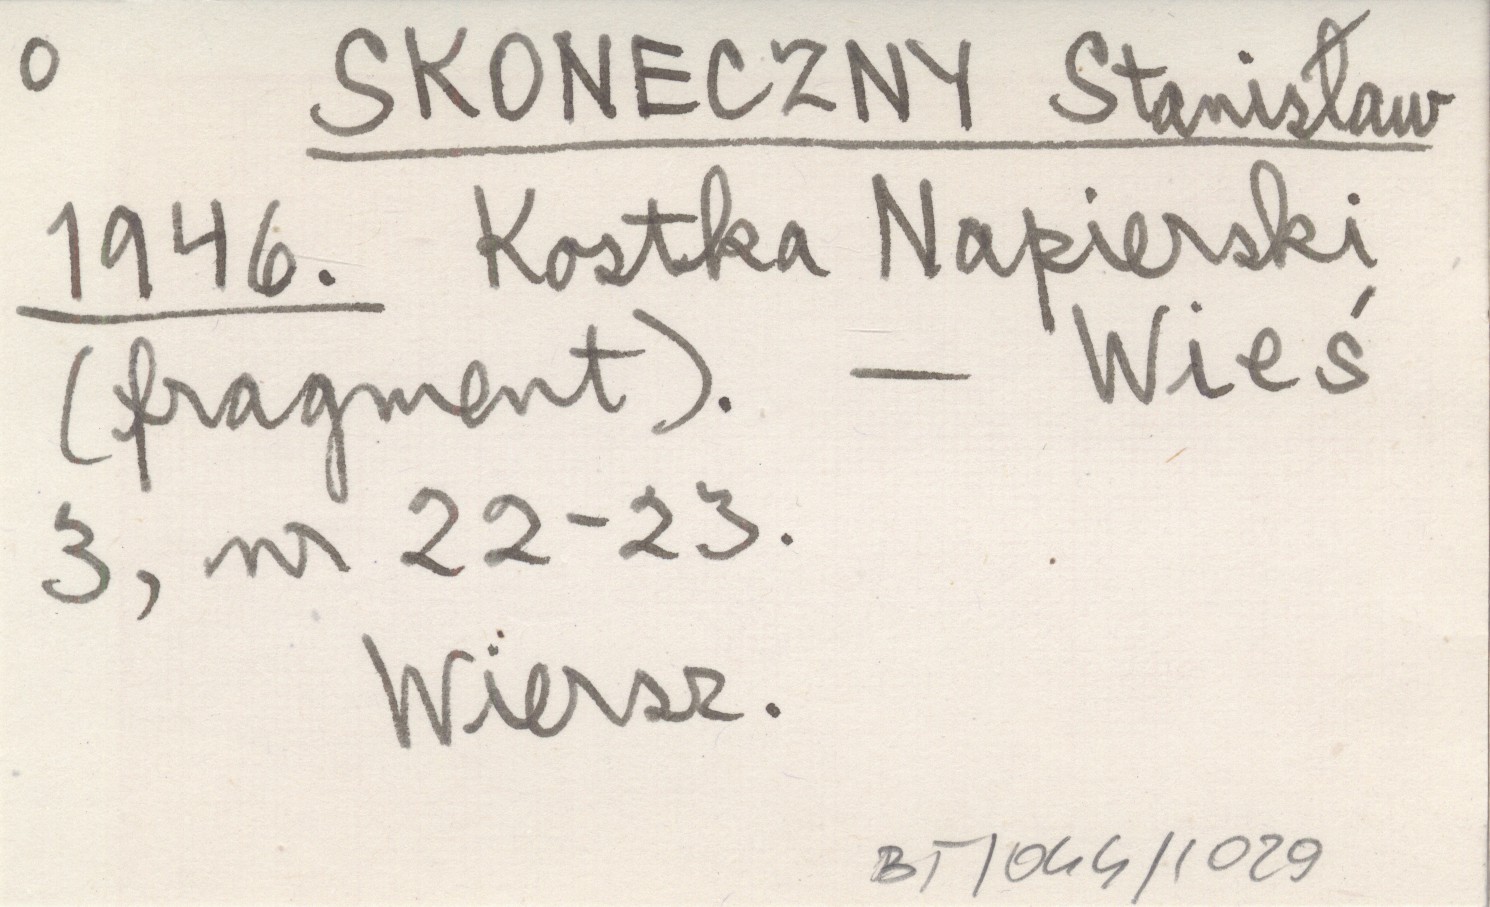 o SKONECZNY Stanisław
1946. Kostka Napierski
(fragment). — Wieś
3, nr 22-23.
Wiersz.
BT/044/1029